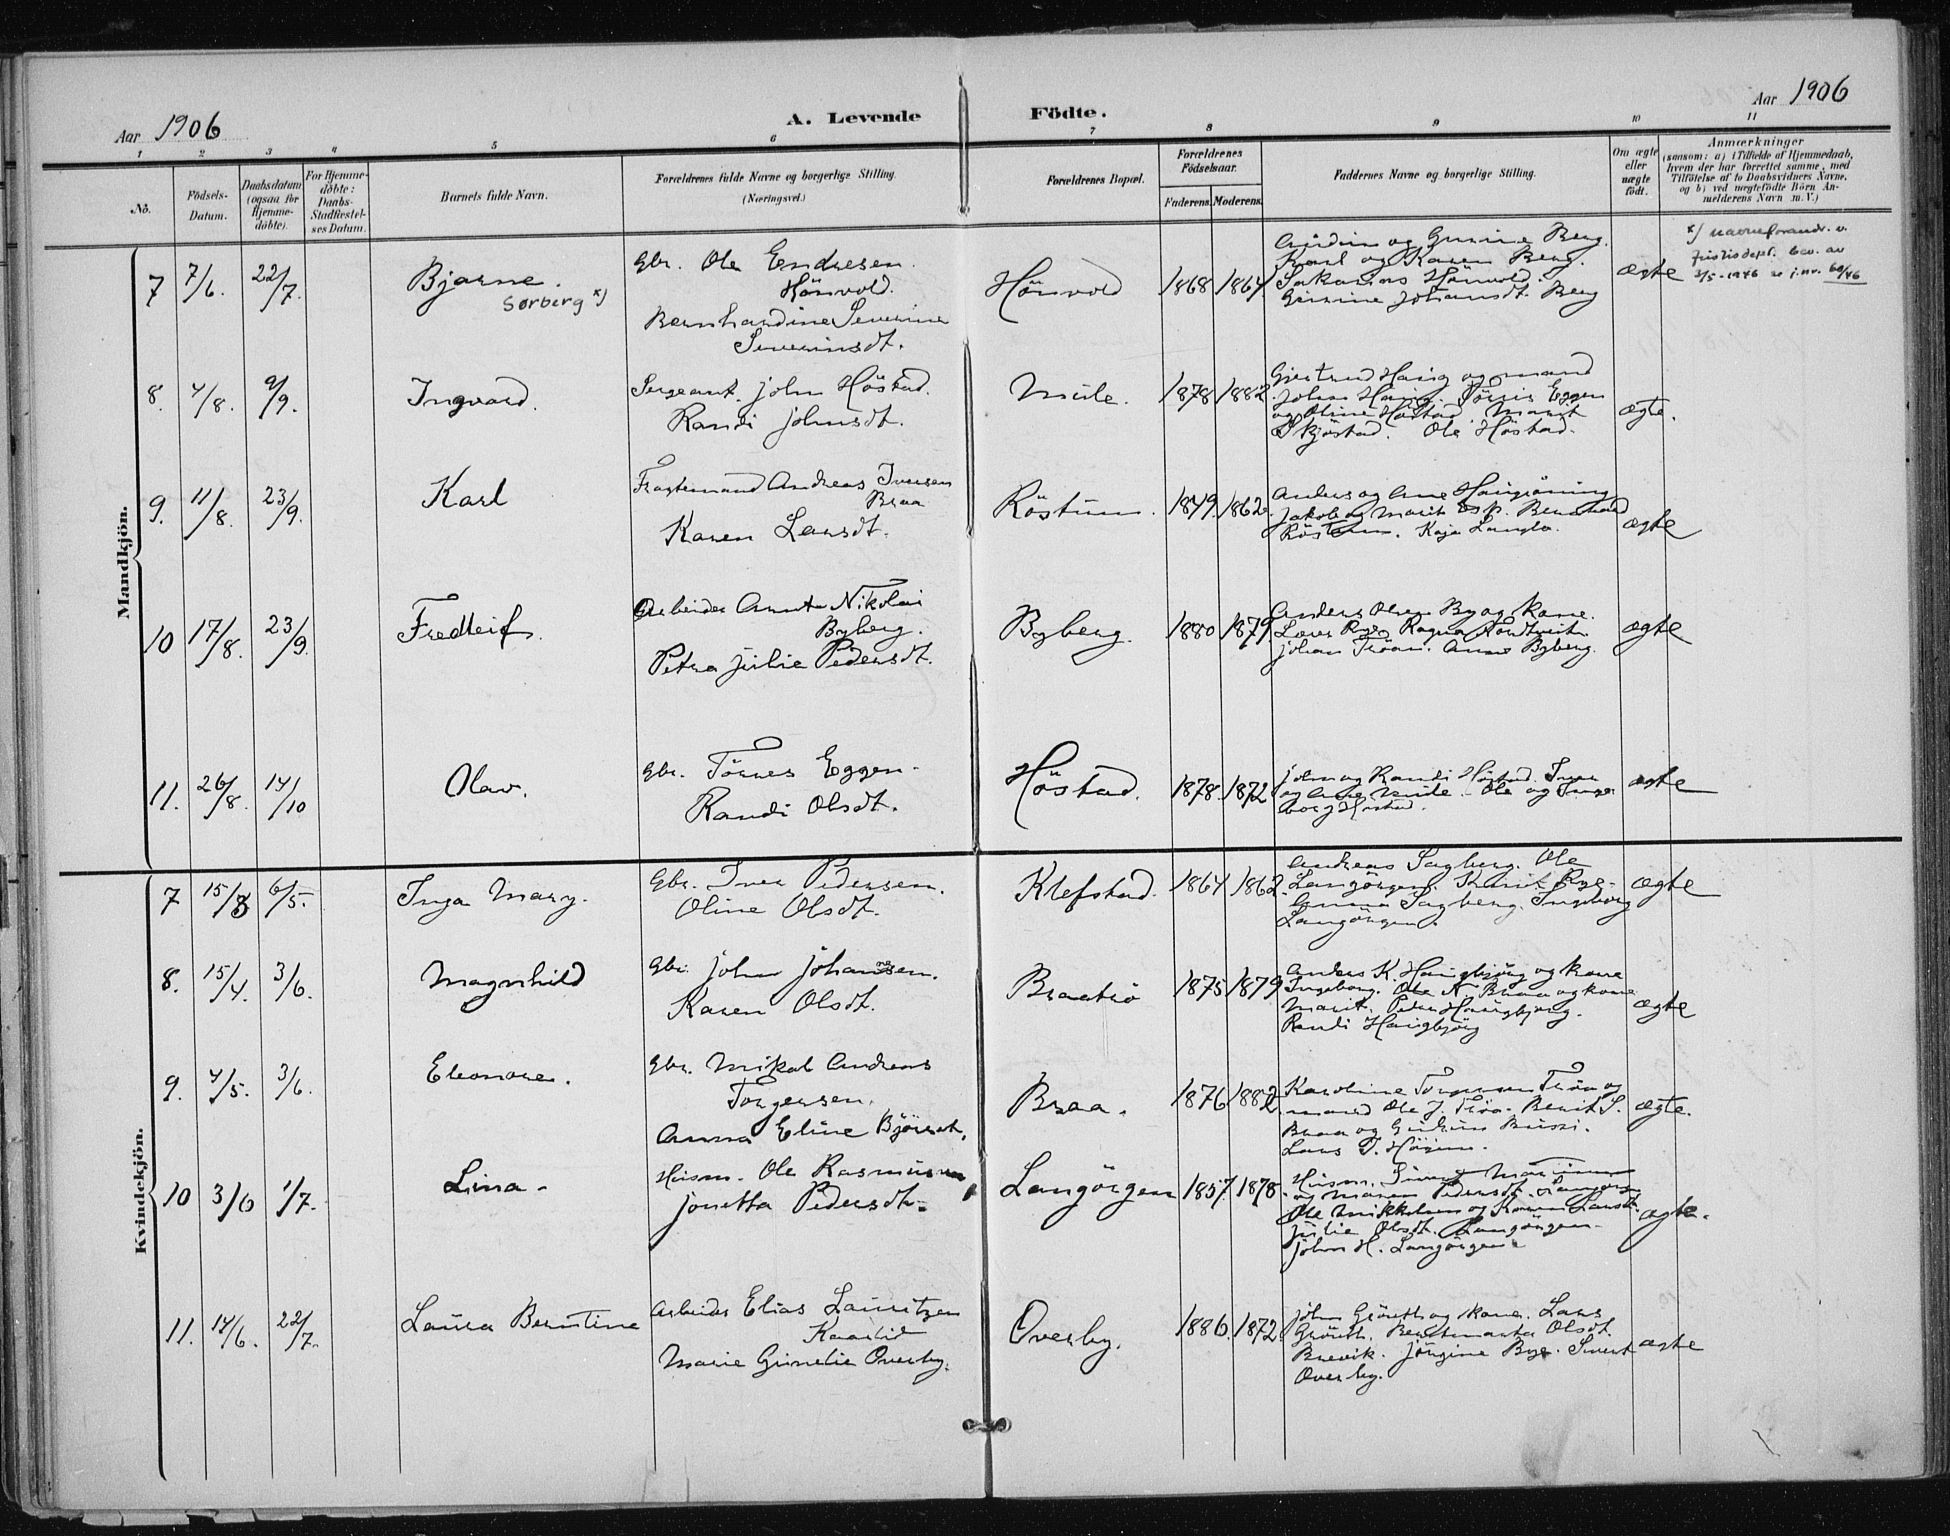 Aar 1906
A. Levende Födte.
Aar 1906
1 2 3 4 5 6 7 8 9 10 11
No.
Födsels-
Datum.
Daabsdatum
(ogsaa for
Hjemme-
døbte).
For Hjemme-
døbte:
Daabs-
Stadfæstel-
ses Datum.
Barnets fulde Navn.
Forældrenes fulde Navne og borgerlige Stilling.
(Næringsvei.)
Forældrenes Bopæl.
Forældrenes
Födselsaar.
Faderens. Moderens.
Faddernes Navne og borgerlige Stilling.
Om ægte
eller
uægte
født.
Anmærkninger
(saasom: a) i Tilfælde af Hjemmedaab,
hvem der har forrettet samme, med
Tilføielse af to Daabsvidners Navne,
og b) ved uægtefødte Börn An-
melderens Navn m. V.)
Mandkjön.
7 7/6. 22/7. Bjarne.
Sørberg x)
Gbr. Ole Endresen
Hönvold.
Bernhardine Severine
Severinsdt.
Hönvold 1868 1864
og Gurine Berg.
Karl og Karen Berg.
Sakarias Hönvold.
Gurine Johansdt. Berg
ægte
x) navneforandr. v.
justisdept. bev. av
3/5-1946 j.nr. 60/46
8. 4/8. 9/9. Ingvard.
Sergeant. John Höstad.
Randi Johnsdt.
Mule. 1878 1882
Gjertrud Haug og mand
John Haug. Eggen
og Oline Höstad. Marit
Skjöstad. Ole Höstad.
ægte.
9. 11/8. 23/9. Karl
Andreas Iversen
Braa
Karen Larsdt.
Röstum. 1849. 1862.
Anders og Ane
Jakob og Marit Bernhard
Röstum. Kaja Langlo.
ægte
10 17/8. 23/9. Fredleif.
Arbeider Nikolai
Byberg.
Petra Julie Pedersdt.
Byberg. 1880 1879
Anders Olsen By og kone.
Lars Rye. Ragna
Johan Tröan. Anne Byberg.
ægte
11. 26/8. 14/10 Olav.
Gbr. Törres Eggen.
Randi Olsdt.
Höstad. 1878. 1872
John og Randi Höstad. Iver
og Ane Mule. Ole og Inge-
borg Höstad.
ægte
Kvindekjön.
7 15/3 6/5. Inga Mary.
Gbr. Iver Pedersen.
Oline Olsdt.
Klefstad. 1864 1862.
Andreas Sagberg. Ole
Langörgen. Marit Rye.
Gunna Sagberg. Ingeborg
Langörgen.
ægte
8. 15/4. 3/6. Magnhild
Gbr. John Johansen.
Karen Olsdt.
Braatrö 1875 1879
Anders K. Haugbjörg og kone
Ingeborg. Ole N. Braa og kone
Marit. Peder Haugbjörg.
Randi Haugbjörg
ægte
9. 4/5. 3/6. Eleonore.
Gbr. Mikal Andreas
Torgersen.
Anna Eline Björnsdt.
Braa. 1876 1882
Karoline Torgersen Tröa og
mand Ole J. Tröa. Berit S.
Braa og Gudrun
Lars T.
ægte.
10 3/6 1/7. Lina.
Husm. Ole Rasmusen
Jonetta Pedersdt.
Langörgen 1857. 1878.
Husm. Sivert
og Maren Pedersdt. Langörg.
Ole Mikkelsen og Karen Larsdt.
Julie Olsdt. Langörgen.
John H. Langörgen.
ægte.
11. 14/6. 22/7. Laura Berntine
Arbeider Elias Lauritzen
Kaarlid
Marie Gunelie Overby.
Overby. 1886. 1872.
John Gröseth og kone. Lars
Gröseth. Olsdt.
Brevik. Jörgine Bye. Sivert
Overby.
ægte